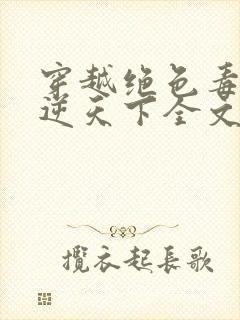 穿越绝色毒
逆天下全文
攬衣起長歌